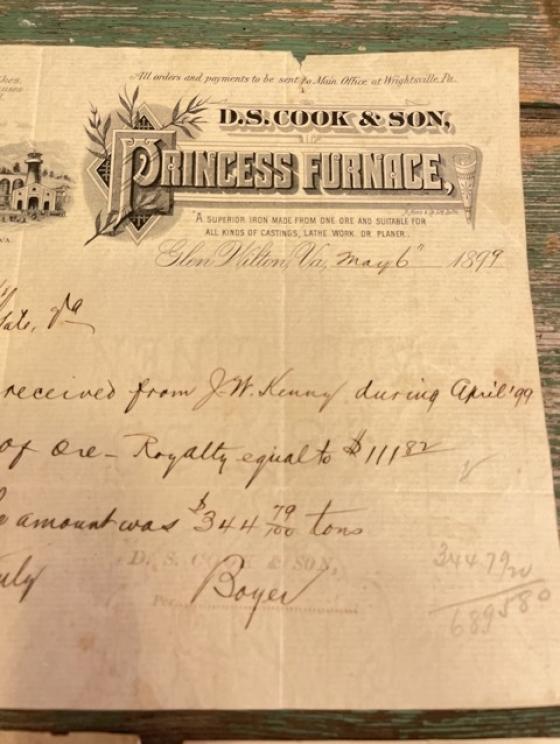 All orders and payments to be sent to Main Office at Wrightsville, Pa.
D.S. COOK & SON,
PRINCESS FURNACE,
"A SUPERIOR IRON MADE FROM ONE ORE AND SUITABLE FOR
ALL KINDS OF CASTINGS, LATHE WORK OR PLANER.
Glen Wilton, Va, May 6" 1899
Va
received from J. W. Kenny during April '99
of Ore - Royalty equal to $111 82
amount was $344 79/100 tons
D. S. COOK & SON,
Per Boyer
344 79
689 580